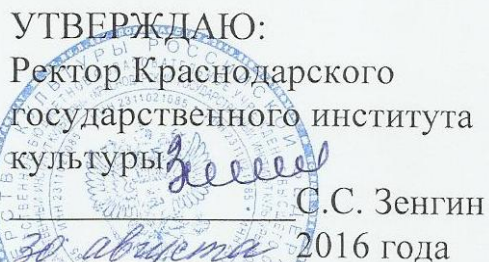 УТВЕРЖДАЮ:
Ректор Краснодарского
государственного института
культуры
С.С. Зенгин
30 августа 2016 года